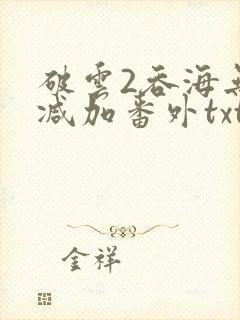 破雲2吞海無
减加番外txt
金祥